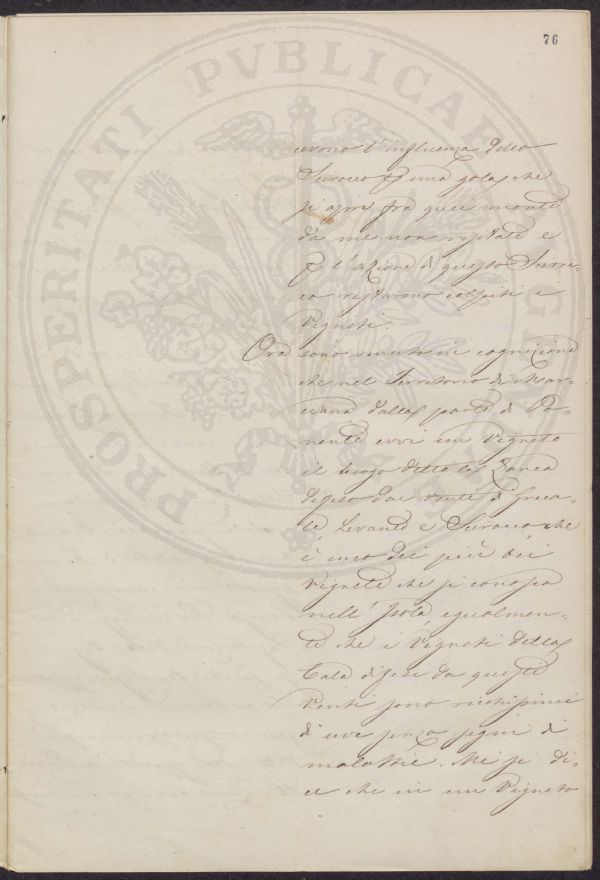 76
PROSPERITATI PVBLICAE
cevono l'influenza dello
Scirocco p una gola che
si apre fra quei monti
da me non visitati e
p l'azione di questo Sciroc=
co restarono colpiti i
Vigneti.
Ora sono venuto in cognizione
che nel Territorio di Mar=
ciana dalla parte di Po=
nente evvi un Vigneto
il luogo detto la Zanca
difeso dai venti di Greca=
le Levante e Scirocco che
è uno dei più bei
Vigneti che si conosca
nell'Isola, egualmen=
te che i Vigneti della
Cala difesi da questi
Venti sono ricchissimi
di uve senza segni di
malattie. Mi si di=
ce che in un Vigneto